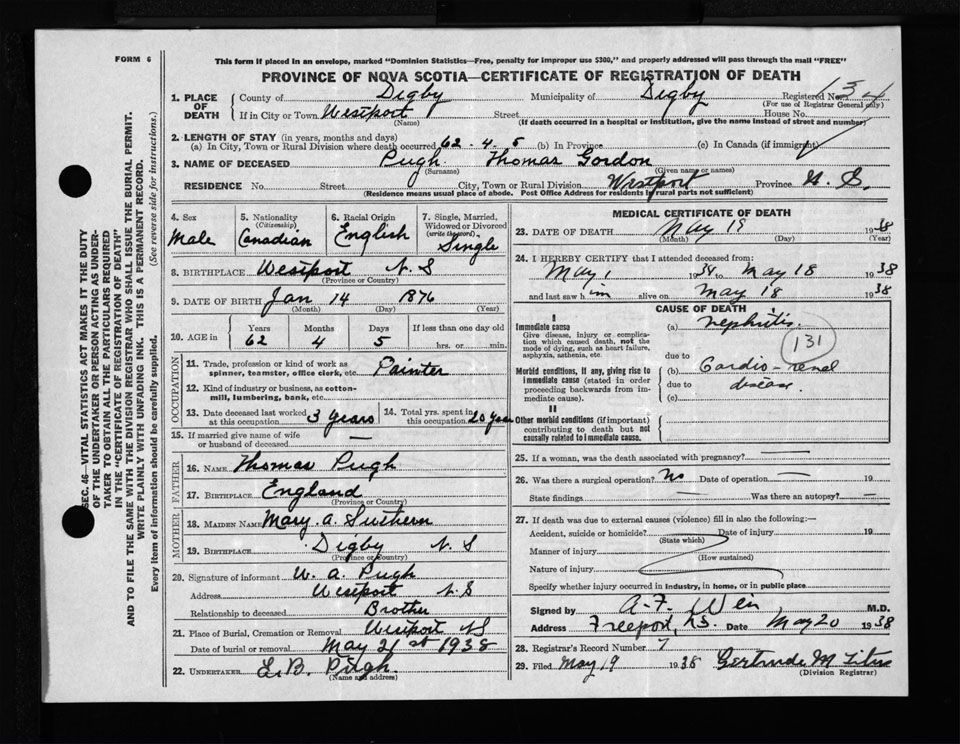 FORM 6
This form if placed in an envelope, marked "Dominion Statistics—Free, penalty for improper use $300," and properly addressed will pass through the mail "FREE"
PROVINCE OF NOVA SCOTIA—CERTIFICATE OF REGISTRATION OF DEATH
SEC. 46—VITAL STATISTICS ACT MAKES IT THE DUTY
OF THE UNDERTAKER OR PERSON ACTING AS UNDER-
TAKER TO OBTAIN ALL THE PARTICULARS REQUIRED
IN THE "CERTIFICATE OF REGISTRATION OF DEATH"
AND TO FILE THE SAME WITH THE DIVISION REGISTRAR WHO SHALL ISSUE THE BURIAL PERMIT.
WRITE PLAINLY WITH UNFADING INK. THIS IS A PERMANENT RECORD.
Every item of information should be carefully supplied. (See reverse side for instructions.)
1. PLACE OF DEATH
County of Digby Municipality of Digby Registered No. 134
(For use of Registrar General only)
If in City or Town Westport Street House No.
(Name) (If death occurred in a hospital or institution, give the name instead of street and number)
2. LENGTH OF STAY (in years, months and days)
(a) In City, Town or Rural Division where death occurred 62-4-5 (b) In Province (c) In Canada (if immigrant)
3. NAME OF DECEASED Pugh Thomas Gordon
(Surname) (Given name or names)
RESIDENCE No. Street City, Town or Rural Division Westport Province N.S.
(Residence means usual place of abode. Post Office Address for residents in rural parts not sufficient)
4. Sex Male
5. Nationality (Citizenship) Canadian
6. Racial Origin English
7. Single, Married, Widowed or Divorced (write the word) Single
8. BIRTHPLACE Westport N.S
(Province or Country)
9. DATE OF BIRTH Jan 14 1876
(Month) (Day) (Year)
10. AGE in Years 62 Months 4 Days 5 If less than one day old hrs. or min.
OCCUPATION
11. Trade, profession or kind of work as spinner, teamster, office clerk, etc. Painter
12. Kind of industry or business, as cotton-mill, lumbering, bank, etc.
13. Date deceased last worked at this occupation 3 years
14. Total yrs. spent in this occupation 20 years
15. If married give name of wife or husband of deceased —
FATHER
16. NAME Thomas Pugh
17. BIRTHPLACE England
(Province or Country)
MOTHER
18. MAIDEN NAME Mary. A.
19. BIRTHPLACE Digby N.S
(Province or Country)
20. Signature of informant W. A. Pugh
Address Westport N.S
Relationship to deceased Brother
21. Place of Burial, Cremation or Removal Westport NS
Date of burial or removal May 21st 1938
22. UNDERTAKER E.B. Pugh
(Name and address)
MEDICAL CERTIFICATE OF DEATH
23. DATE OF DEATH May 19 1938
(Month) (Day) (Year)
24. I HEREBY CERTIFY that I attended deceased from:
May 1 1938 to May 18 1938
and last saw him alive on May 18 1938
CAUSE OF DEATH
I
Immediate cause
Give disease, injury or complication which caused death, not the mode of dying, such as heart failure, asphyxia, asthenia, etc.
(a) nephritis. 131
due to
Morbid conditions, if any, giving rise to immediate cause (stated in order proceeding backwards from immediate cause).
(b) Cardio-renal
due to disease.
(c)
II
Other morbid conditions (if important) contributing to death but not causally related to immediate cause.
25. If a woman, was the death associated with pregnancy? —
26. Was there a surgical operation? No Date of operation 19
State findings Was there an autopsy? —
27. If death was due to external causes (violence) fill in also the following:—
Accident, suicide or homicide? Date of injury 19
(State which)
Manner of injury
(How sustained)
Nature of injury
Specify whether injury occurred in industry, in home, or in public place
Signed by A. F. Weir M.D.
Address Freeport, N.S. Date May 20 1938
28. Registrar's Record Number 7
29. Filed May 19 1938 Gertrude M Titus
(Division Registrar)